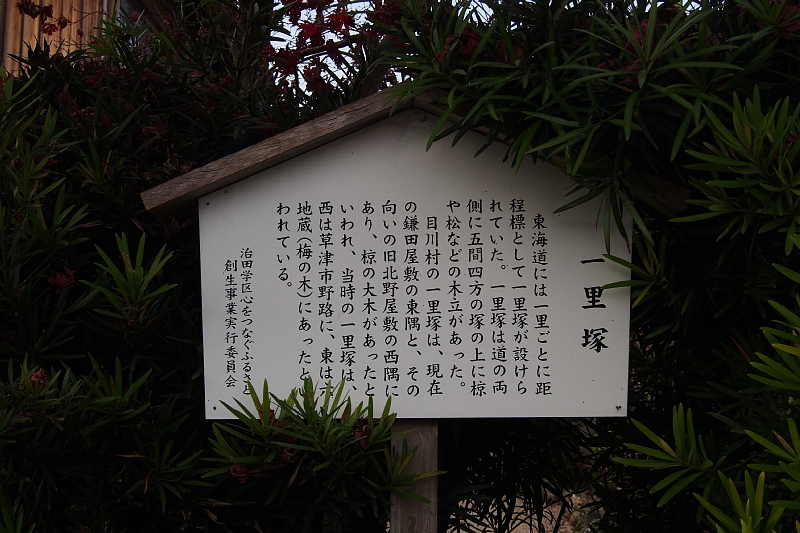 一里塚
東海道には一里ごとに距
程標として一里塚が設けら
れていた。一里塚は道の両
側に五間四方の塚の上に椋
や松などの木立があった。
目川村の一里塚は、現在
の鎌田屋敷の東隅と、その
向いの旧北野屋敷の西隅に
あり、椋の大木があったと
いわれ、当時の一里塚は、
西は草津市野路に、東は六
地蔵(梅の木)にあったとい
われている。
治田学区心をつなぐふるさと
創生事業実行委員会